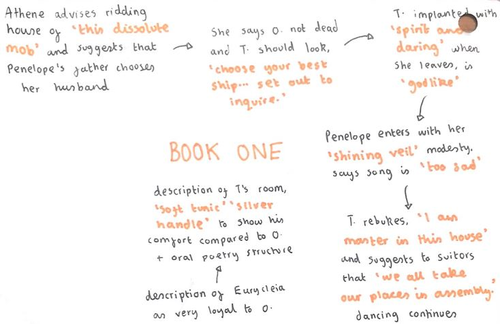 Athene advises ridding
house of 'this dissolute
mob' and suggests that
Penelope's father chooses
her husband
She says O. not dead
and T. should look,
'choose your best
ship... set out to
inquire.'
T. implanted with
'spirit and
daring' when
she leaves, is
'godlike'
Penelope enters with her
'shining veil' modesty,
says song is 'too sad'
T. rebukes, 'I am
master in this house'
and suggests to suitors
that 'we all take
our places in assembly.'
dancing continues
BOOK ONE
description of T's room,
'soft tunic' 'silver
handle' to show his
comfort compared to O.
+ oral poetry structure
description of Eurycleia
as very loyal to O.